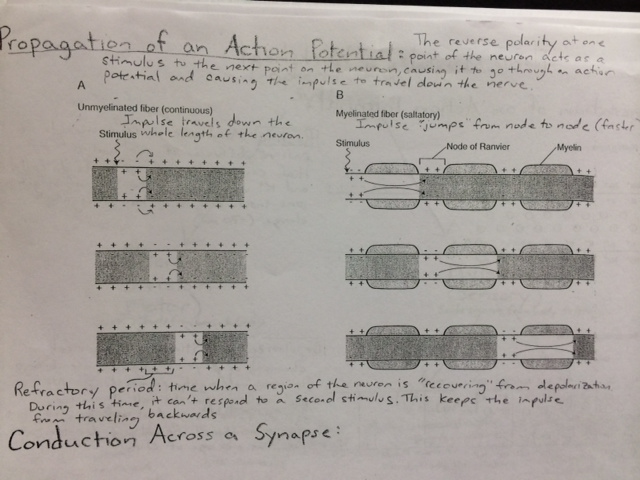 Propagation of an Action Potential: The reverse polarity at one
point of the neuron acts as a
stimulus to the next point on the neuron, causing it to go through an action
potential and causing the impulse to travel down the nerve.
A
Unmyelinated fiber (continuous)
Impulse travels down the
Stimulus whole length of the neuron.
B
Myelinated fiber (saltatory)
Impulse "jumps" from node to node (faster
Stimulus
Node of Ranvier
Myelin
Refractory period: time when a region of the neuron is "recovering" from depolarization
During this time, it can't respond to a second stimulus. This keeps the impulse
from traveling backwards
Conduction Across a Synapse: